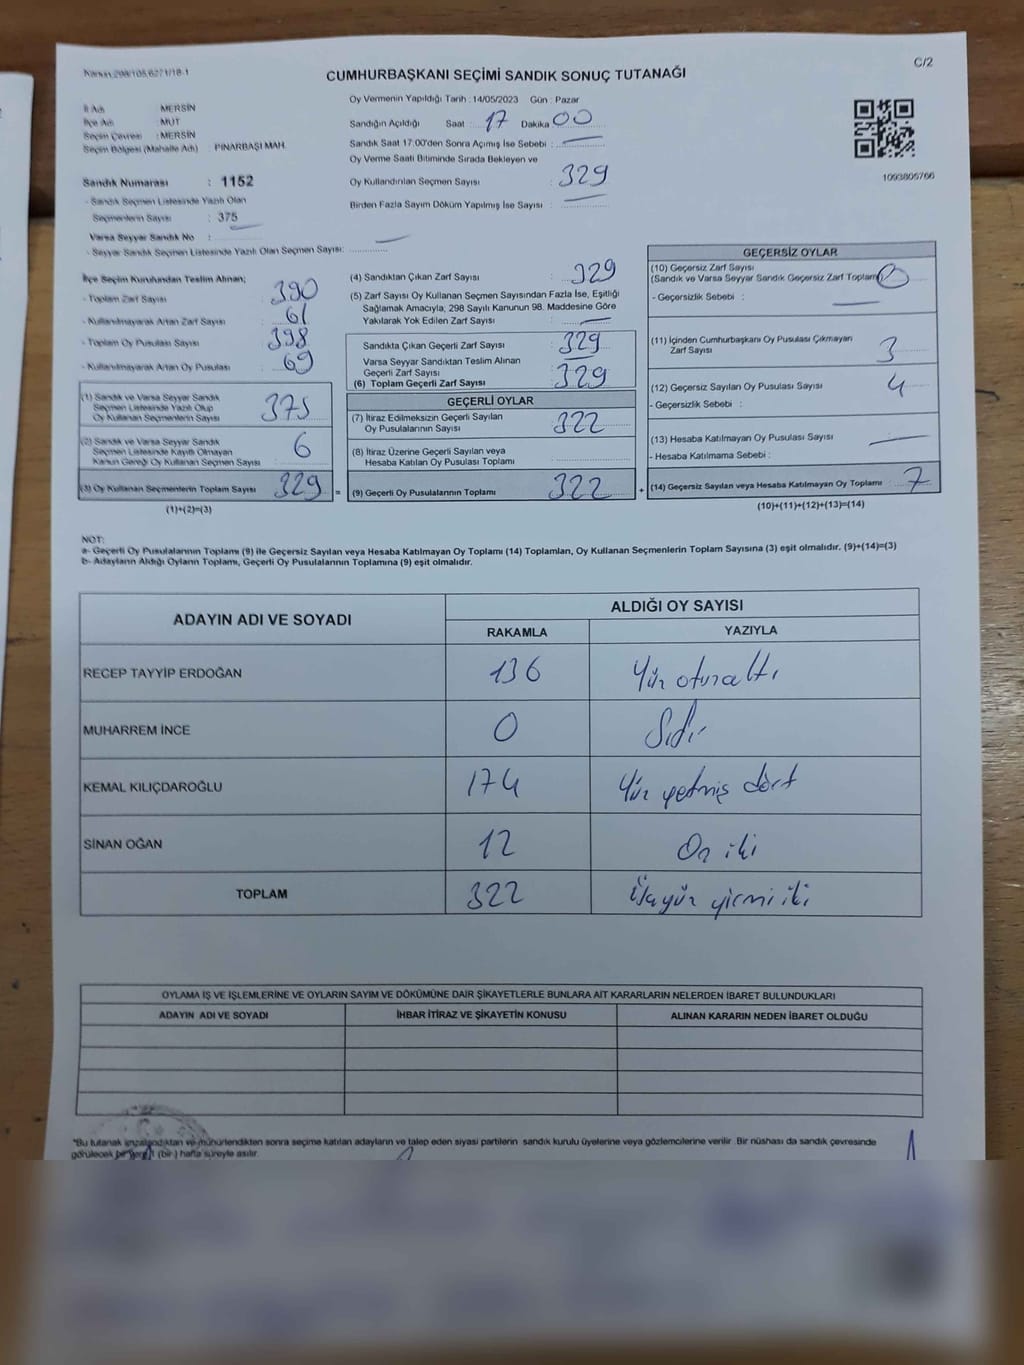 Kanun:298/105,6271/18-1
C/2
CUMHURBAŞKANI SEÇİMİ SANDIK SONUÇ TUTANAĞI
İl Adı : MERSİN
İlçe Adı : MUT
Seçim Çevresi : MERSİN
Seçim Bölgesi (Mahalle Adı) PINARBAŞI MAH.
Sandık Numarası : 1152
- Sandık Seçmen Listesinde Yazılı Olan
Seçmenlerin Sayısı : 375
Varsa Seyyar Sandık No :
- Seyyar Sandık Seçmen Listesinde Yazılı Olan Seçmen Sayısı:
Oy Vermenin Yapıldığı Tarih : 14/05/2023 Gün : Pazar
Sandığın Açıldığı Saat : 17 Dakika 00
Sandık Saat 17:00'den Sonra Açımış İse Sebebi :
Oy Verme Saati Bitiminde Sırada Bekleyen ve
Oy Kullandırılan Seçmen Sayısı : 329
Birden Fazla Sayım Döküm Yapılmış İse Sayısı :
1093805766
İlçe Seçim Kurulundan Teslim Alınan;
- Toplam Zarf Sayısı : 390
- Kullanılmayarak Artan Zarf Sayısı : 61
- Toplam Oy Pusulası Sayısı : 398
- Kullanılmayarak Artan Oy Pusulası : 69
(1) Sandık ve Varsa Seyyar Sandık
Seçmen Listesinde Yazılı Olup
Oy Kullanan Seçmenlerin Sayısı 375
(2) Sandık ve Varsa Seyyar Sandık
Seçmen Listesinde Kayıtlı Olmayan
Kanun Gereği Oy Kullanan Seçmen Sayısı 6
(3) Oy Kullanan Seçmenlerin Toplam Sayısı 329 =
(1)+(2)=(3)
(4) Sandıktan Çıkan Zarf Sayısı : 329
(5) Zarf Sayısı Oy Kullanan Seçmen Sayısından Fazla İse, Eşitliği
Sağlamak Amacıyla; 298 Sayılı Kanunun 98. Maddesine Göre
Yakılarak Yok Edilen Zarf Sayısı :
Sandıkta Çıkan Geçerli Zarf Sayısı : 329
Varsa Seyyar Sandıktan Teslim Alınan
Geçerli Zarf Sayısı :
(6) Toplam Geçerli Zarf Sayısı : 329
GEÇERLİ OYLAR
(7) İtiraz Edilmeksizin Geçerli Sayılan
Oy Pusulalarının Sayısı : 322
(8) İtiraz Üzerine Geçerli Sayılan veya
Hesaba Katılan Oy Pusulası Toplamı :
(9) Geçerli Oy Pusulalarının Toplamı : 322 +
GEÇERSİZ OYLAR
(10) Geçersiz Zarf Sayısı
(Sandık ve Varsa Seyyar Sandık Geçersiz Zarf Toplamı) 0
- Geçersizlik Sebebi :
(11) İçinden Cumhurbaşkanı Oy Pusulası Çıkmayan
Zarf Sayısı 3
(12) Geçersiz Sayılan Oy Pusulası Sayısı 4
- Geçersizlik Sebebi :
(13) Hesaba Katılmayan Oy Pusulası Sayısı
- Hesaba Katılmama Sebebi :
(14) Geçersiz Sayılan veya Hesaba Katılmayan Oy Toplamı 7
(10)+(11)+(12)+(13)=(14)
NOT:
a- Geçerli Oy Pusulalarının Toplamı (9) ile Geçersiz Sayılan veya Hesaba Katılmayan Oy Toplamı (14) Toplamları, Oy Kullanan Seçmenlerin Toplam Sayısına (3) eşit olmalıdır. (9)+(14)=(3)
b- Adayların Aldığı Oyların Toplamı, Geçerli Oy Pusulalarının Toplamına (9) eşit olmalıdır.
ADAYIN ADI VE SOYADI ALDIĞI OY SAYISI
RAKAMLA YAZIYLA
RECEP TAYYİP ERDOĞAN 136 Yüz otuz altı
MUHARREM İNCE 0 Sıfır
KEMAL KILIÇDAROĞLU 174 Yüz yetmiş dört
SİNAN OĞAN 12 On iki
TOPLAM 322 Üçyüz yirmi iki
OYLAMA İŞ VE İŞLEMLERİNE VE OYLARIN SAYIM VE DÖKÜMÜNE DAİR ŞİKAYETLERLE BUNLARA AİT KARARLARIN NELERDEN İBARET BULUNDUKLARI
ADAYIN ADI VE SOYADI İHBAR İTİRAZ VE ŞİKAYETİN KONUSU ALINAN KARARIN NEDEN İBARET OLDUĞU
*Bu tutanak imzalandıktan ve mühürlendikten sonra seçime katılan adayların ve talep eden siyasi partilerin sandık kurulu üyelerine veya gözlemcilerine verilir. Bir nüshası da sandık çevresinde
görülecek bir yere 1 (bir) hafta süreyle asılır.